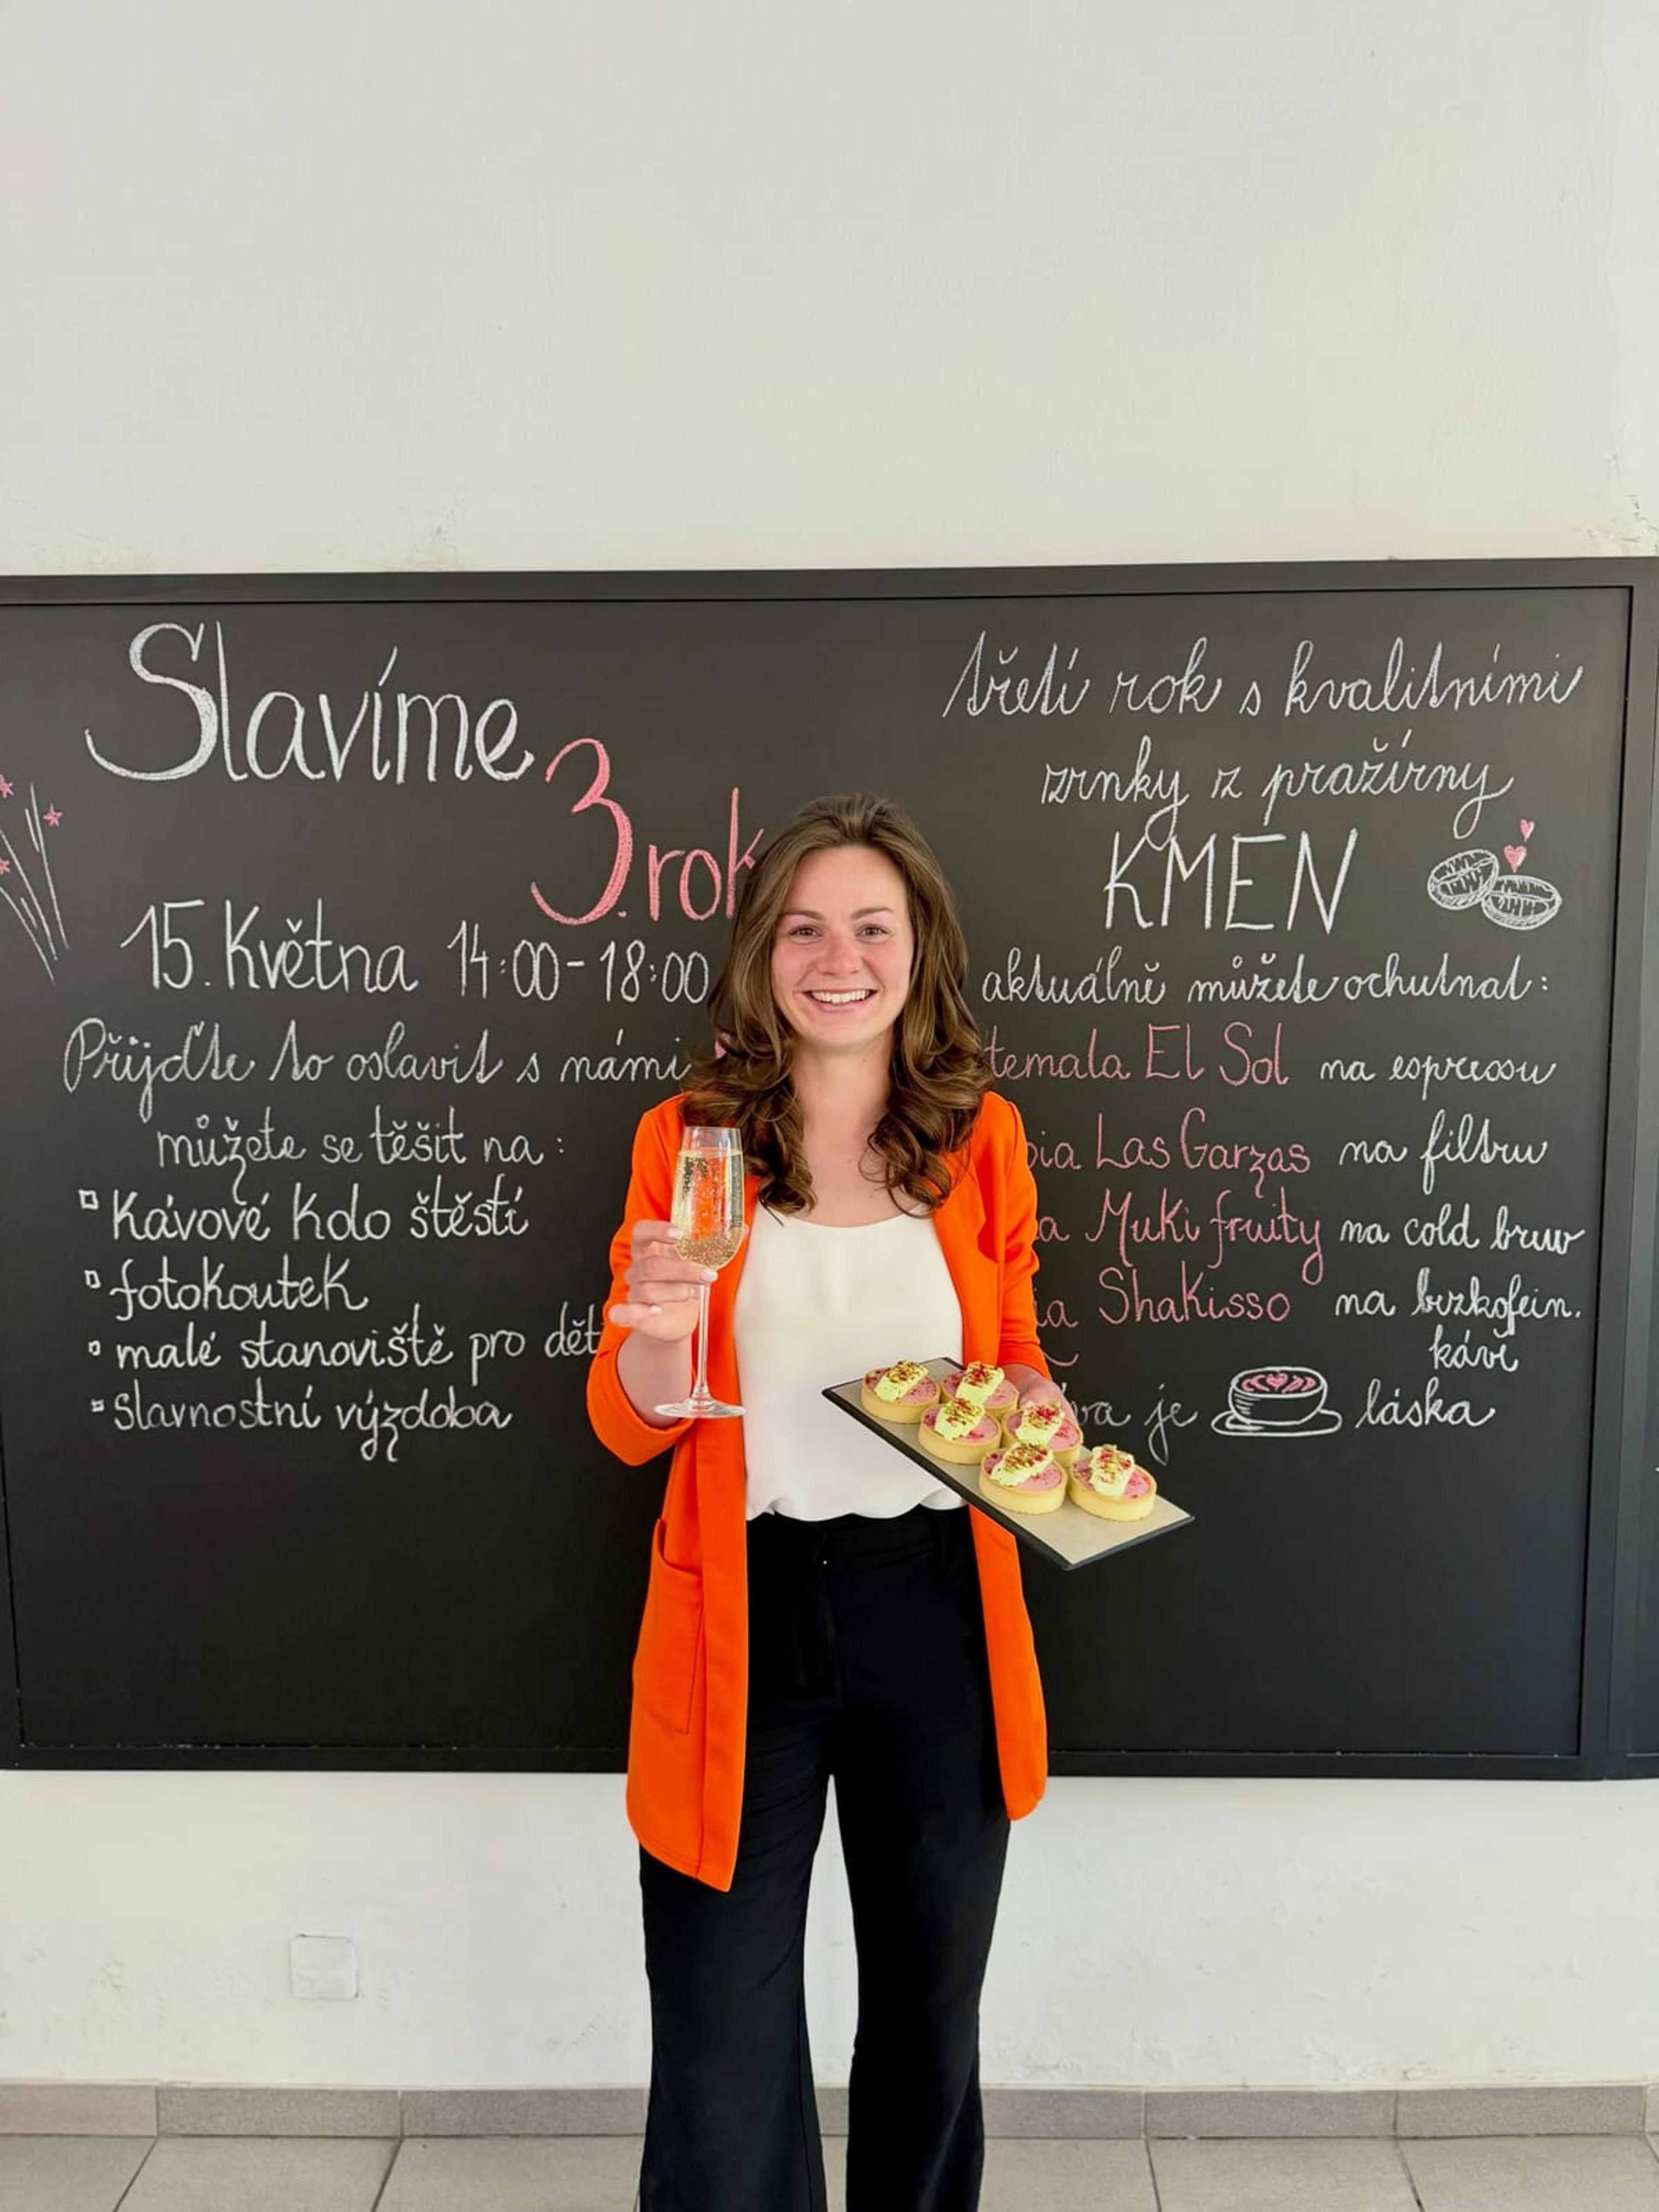 Slavíme
3. rok
15. Května 14:00-18:00
Přijďte to oslavit s námi
můžete se těšit na:
Kávové Kolo štěstí
fotokoutek
malé stanoviště pro dět
Slavnostní výzdoba
třetí rok s kvalitními
zrnky z pražírny
KMEN
aktuálně můžete ochutnat:
temala El Sol na espressu
bia Las Garzas na filtru
a Muki fruity na cold brew
ia Shakisso na bezkofein.
kávě
va je láska